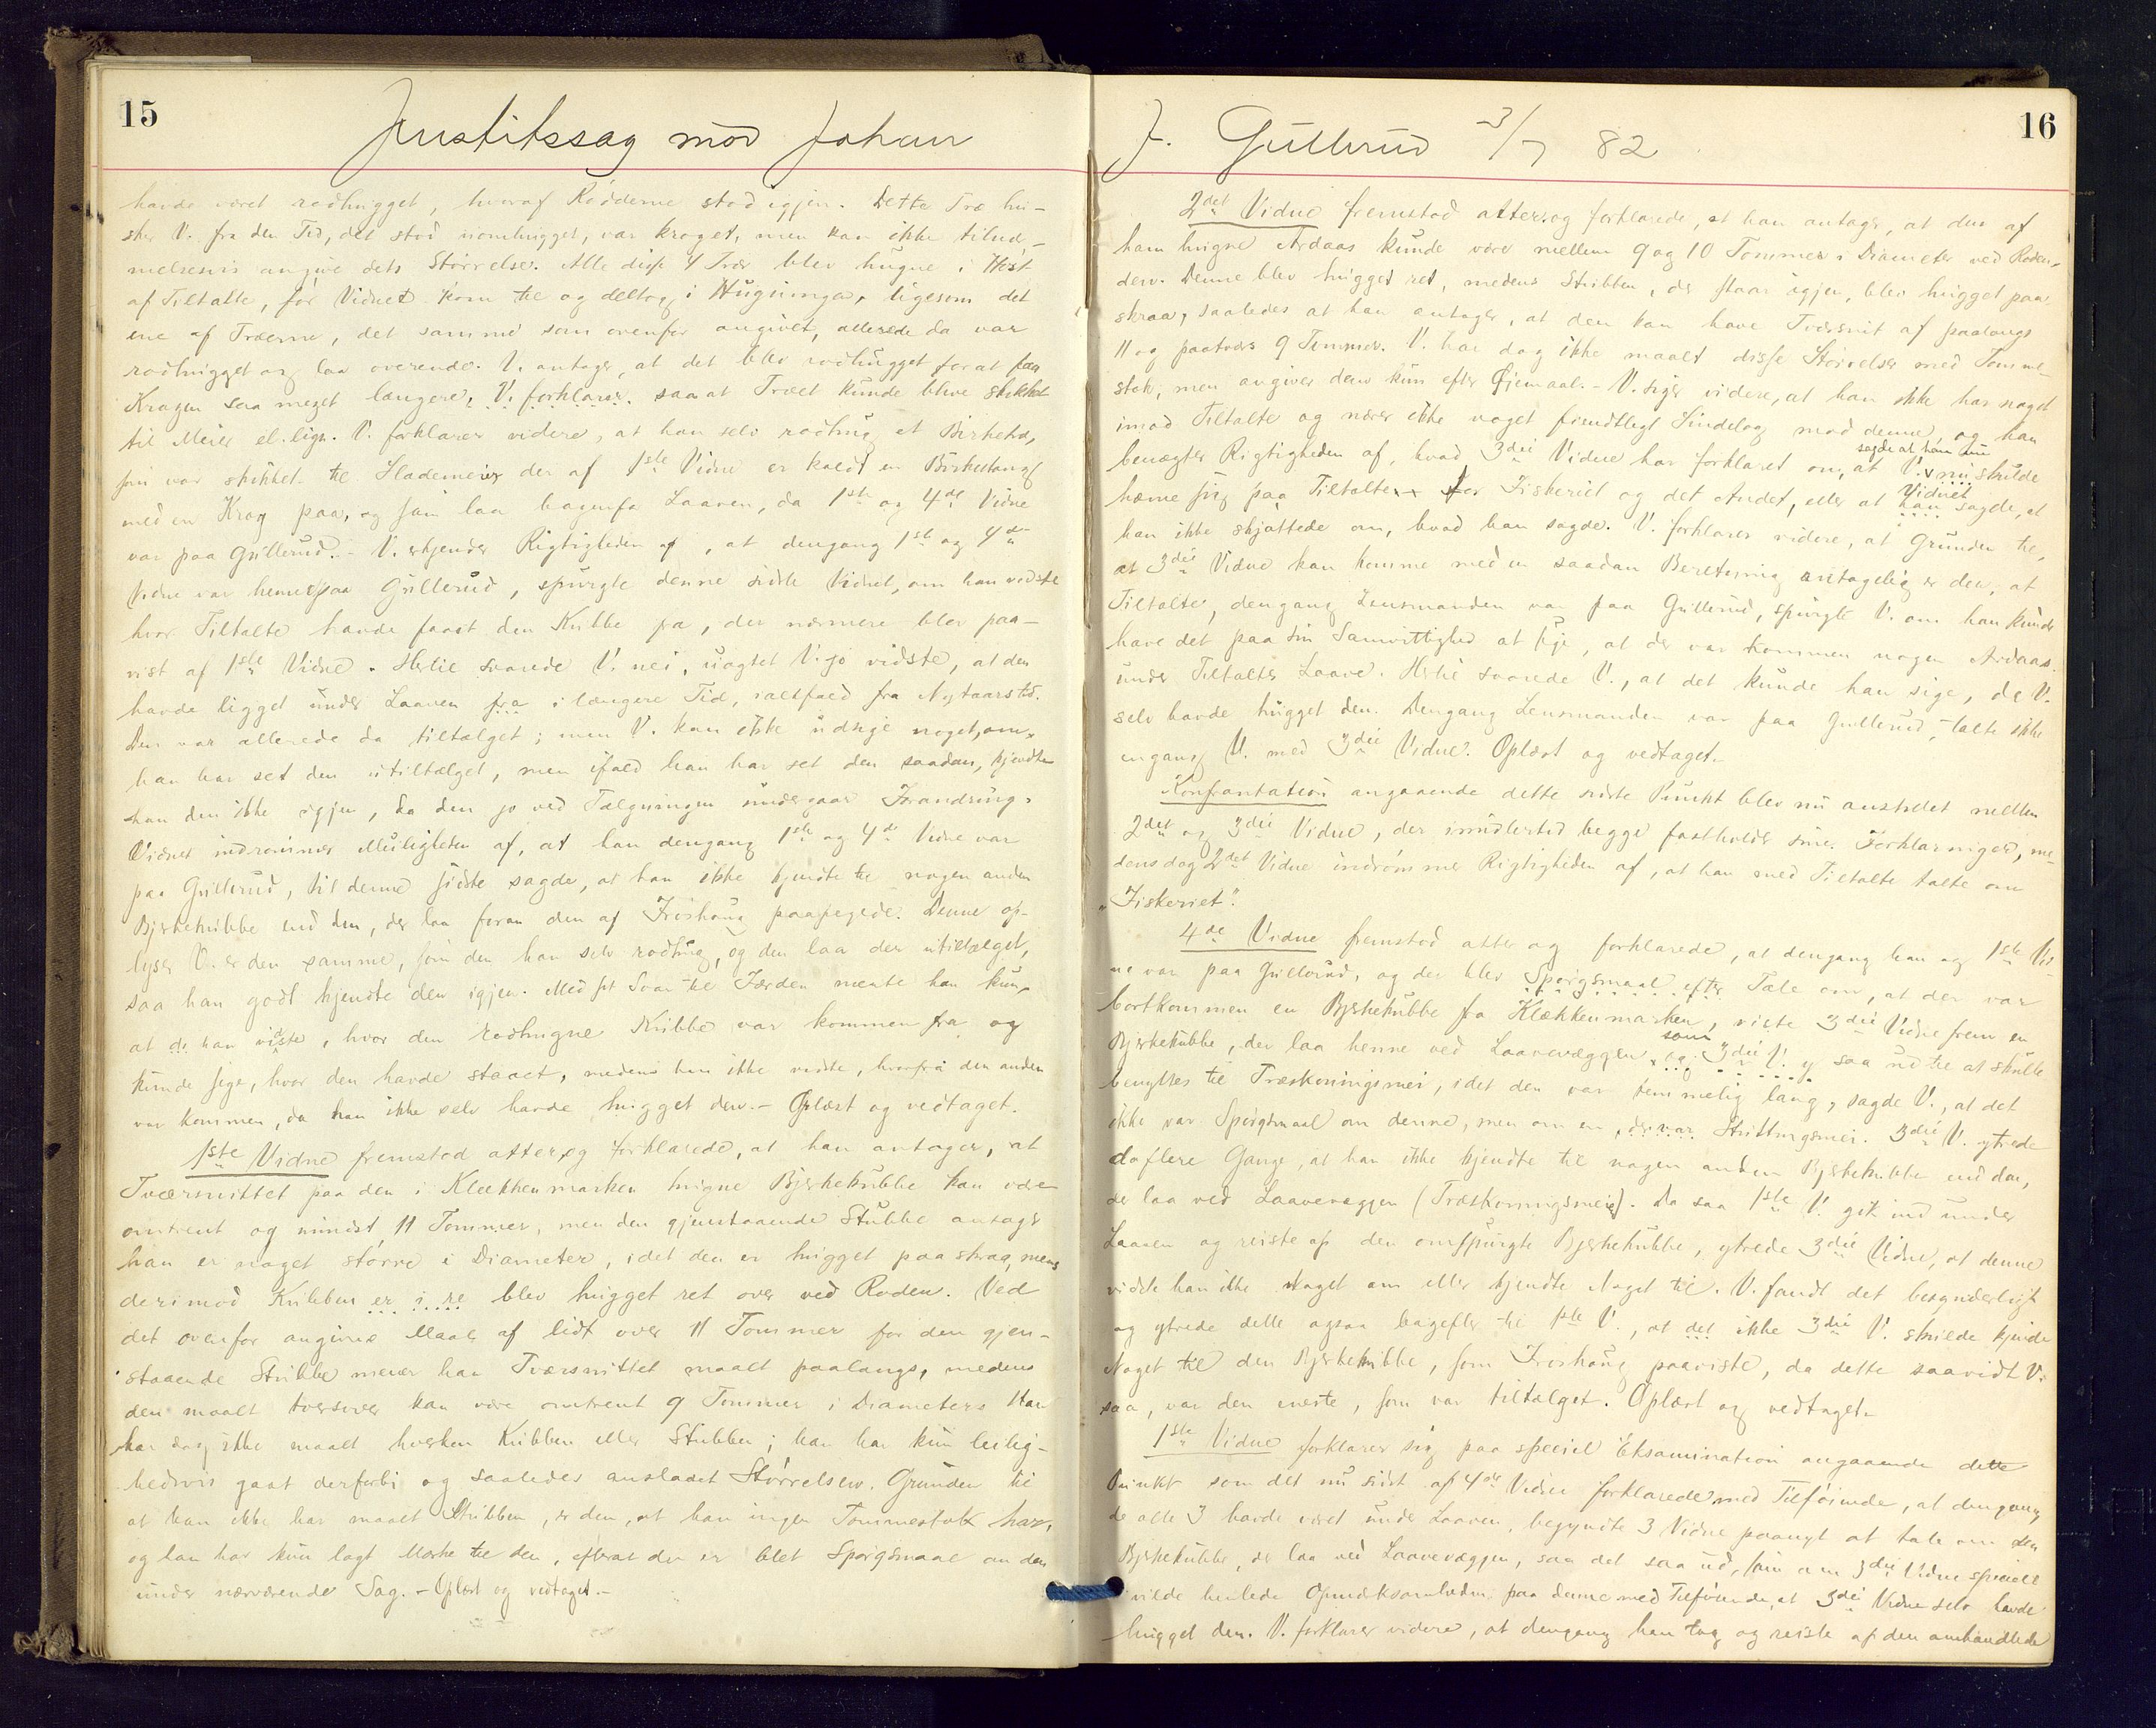 15
Justitssag mod Johan
havde været rodhugget, hvoraf Rødderne stod igjen. Dette Træ hu-
sker V. fra den Tid, det stod uomhugget, var kroget, men kan ikke tilnær-
melsesvis angive dets Størrelse. Alle disse 4 Trær blev hugne i Høst
af Tiltalte, før Vidnet kom til og deltog i Hugninga, ligesom det
ene af Træerne, det samme som ovenfor angivet, allerede da var
rodhugget og laa overende. V. antager, at det blev rodhugget for at faa
Krogen saa meget længere, V. forklarer saa at Træet kunde blive skikket
til Meier el. lign. V. forklarer videre, at han selv rodhug et Birketræ,
som var skikket til Slademeier der af 1ste Vidne er kaldt en Birkestang
med en Krog paa, og som laa bagenfor Laaven, da 1ste og 4de Vidne
var paa Gullerud. - V. erkjender Rigtigheden af, at dengang 1ste og 4de
Vidne var henne paa Gullerud, spurgte denne sidste Vidnet, om han vidste
hvor Tiltalte havde faaet den Kubbe fra, der nærmere blev paa-
vist af 1ste Vidne. Hertil svarede V. nei, uagtet V. jo vidste, at den
havde ligget under Laaven fra i længere Tid, ialtfald fra Nytaarstid.
Den var allerede da tiltælget; men V. kan ikke udsige noget, om
han har set den utiltælget, men ifald han har set den saadan, kjendte
han den ikke igjen, da den jo ved Tælgningen undergaar Forandring.
Vidnet indrømmer Muligheden af, at han dengang 1ste og 4de Vidne var
paa Gullerud, til denne sidste sagde, at han ikke kjendte til nogen anden
Bjerkekubbe end den, der laa foran den af Froshaug paapegede. Denne op-
lyser V. er den samme, som den han selv rodhug, og den laa der utiltælget,
saa han godt kjendte den igjen. Med sit Svar til Færden mente han kun,
at de han vidste, hvor den rodhugne Kubbe var kommen fra og
kunde sige, hvor den havde staaet, medens han ikke vidste, hvorfra den anden
var kommen, da han ikke selv havde hugget den. - Oplæst og vedtaget.
1ste Vidne fremstod atter og forklarede, at han antager, at
Tværsnittet paa den i Klækkenmarken hugne Bjerkekubbe kan være
omtrent og mindst 11 Tommer, men den gjenstaaende Stubbe antager
han er noget større i Diameter, idet den er hugget paa skraa, mens
derimod Kubben er i re blev hugget ret over ved Roden. Ved
det ovenfor angivne Maal af lidt over 11 Tommer for den gjen-
staaende Stubbe mener han Tværsnittet maalt paalangs, medens
den maalt tversover kan være omtrent 9 Tommer i Diameter. Han
har dog ikke maalt hverken Kubben eller Stubben; han har kun leilig-
hedsvis gaat derforbi og saaledes anslaaet Størrelsen. Grunden til
at han ikke har maalt Stubben, er den, at han ingen Tommestok har,
og han har kun lagt Mærke til den, efterat der er blet Spørgsmaal om den
under nærværende Sag. - Oplæst og vedtaget. -
J. Gullerud 3/7 82
16
2det Vidne fremstod atter og forklarede, at han antager, at den af
ham hugne Ardaas kunde være mellem 9 og 10 Tommer i Diameter ved Roden-
den. Denne blev hugget ret, medens Stubben, der staar igjen, blev hugget paa
skraa, saaledes at han antager, at den kan have Tværsnit af paalangs
11 og paatvers 9 Tommer. V. har dog ikke maalt disse Størrelser med Tomme-
stok, men angiver dem kun efter Øjemaal. - V. siger videre, at han ikke har noget
imod Tiltalte og nærer ikke noget fiendtligt Sindelag mod denne, og han
benægter Rigtigheden af, hvad 3die Vidne har forklaret om, at V. nu skulde
sagde at han nu
hævne sig paa Tiltalte for Fiskeriet og det Andet, eller at han sagde, at
Vidnet
han ikke skjøttede om, hvad han sagde. V. forklarer videre, at Grunden til,
at 3die Vidne kan komme med en saadan Beretning antagelig er den, at
Tiltalte, dengang Lensmanden var paa Gullerud, spurgte V. om han kunde
have det paa sin Samvittighed at sige, at der var kommen nogen Ardaas
under Tiltaltes Laave. Hertil svarede V., at det kunde han sige, da V.
selv havde hugget den. Dengang Lensmanden var paa Gullerud, talte ikke
engang V. med 3die Vidne. Oplæst og vedtaget.
Konfrontation angaaende dette sidste Punkt blev nu anstillet mellem
2det og 3die Vidne, der imidlertid begge fastholder sine Forklaringer, me-
dens dog 2det Vidne indrømmer Rigtigheden af, at han med Tiltalte talte om
"Fiskeriet".
4de Vidne fremstod atter og forklarede, at dengang han og 1ste Vid-
ne var paa Gullerud, og der blev Spørgsmaal efter Tale om, at der var
bortkommen en Bjerkekubbe fra Klækkenmarken, viste 3die Vidne frem en
Bjerkekubbe, der laa henne ved Laavevæggen, og 3die V. saa ud til at skulle
som
benyttes til Træskoningsmei, idet den var temmelig lang, sagde V., at det
ikke var Spørgsmaal om denne, men om en der var Stuttingsmei. 3die V. ytrede
da flere Gange, at han ikke kjendte til nogen anden Bjerkekubbe end den,
der laa ved Laavevæggen (Træskoningsmeie). Da saa 1ste V. gik ind under
Laaven og reiste op den omspurgte Bjerkekubbe, ytrede 3die Vidne, at denne
vidste han ikke Noget om eller kjendte Noget til. V. fandt det besynderligt
og ytrede dette ogsaa bagefter til 1ste V., at det ikke 3die V. skulde kjende
Noget til den Bjerkekubbe, som Froshaug paaviste, da dette saavidt V.
saa, var den eneste, som var tiltælget. Oplæst og vedtaget.
1ste Vidne forklarer sig paa speciel Eksamination angaaende dette
Punkt som det nu sidst af 4de Vidne forklarede med Tilføiende, at dengang
de alle 3 havde været under Laaven, begyndte 3 Vidne paanyt at tale om den
Bjerkekubbe, der laa ved Laavevæggen, saa det saa ud, som om 3die Vidne specielt
vilde henlede Opmærksomheden paa denne med Tilføiende, at 3die Vidne selv havde
hugget den. V. forklarer videre, at dengang han tog og reiste op den omhandlede